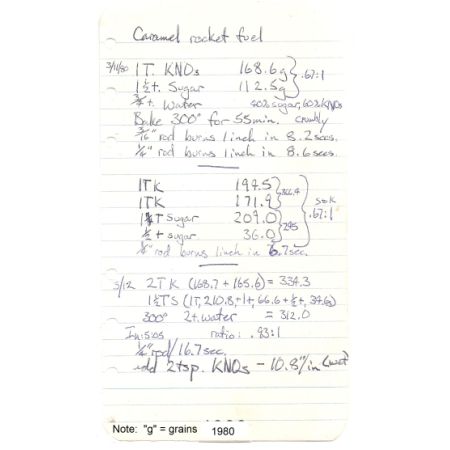 Caramel rocket fuel
3/11/80 1 T. KNO3 168.6g } .67:1
1½t. Sugar 112.5g
¾t. Water 40% sugar, 60% KNO3
Bake 300° for 55 min. crumbly
3/16" rod burns 1 inch in 8.2 secs.
¼" rod burns 1 inch in 8.6 secs.
1TK 194.5 } 366.4
1TK 171.9 S:K
T sugar 209.0 } 245 .67:1
½ t sugar 36.0
¼" rod burns 1 inch in 6.7 sec.
3/12 2 T K (168.7 + 165.6) = 334.3
1½TS (1T, 210.8, +1t, 66.6 + ½t, 34.6)
300° 2t. water = 312.0
In: 5:05 ratio: .93:1
¼" rod/16.7 sec.
add 2 tsp. KNO3 – 10.8"/in (wet)
Note: "g" = grains 1980